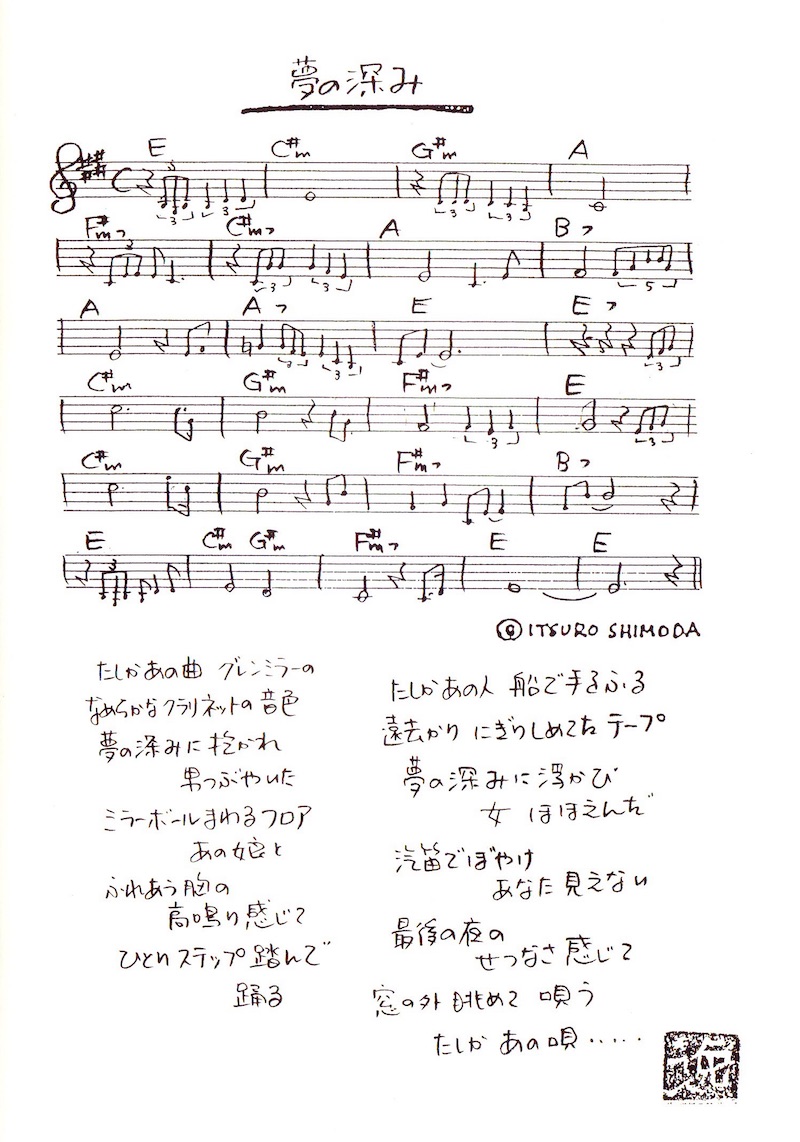 夢の深み
E C#m G#m A
F#m7 C#m7 A B7
A A7 E E7
C#m G#m F#m7 E
C#m G#m F#m7 B7
E C#m G#m F#m7 E E
© ITSURO SHIMODA
たしかあの曲 グレンミラーの
なめらかなクラリネットの音色
夢の深みに抱かれ
男つぶやいた
ミラーボールまわるフロア
あの娘と
ふれあう胸の
高鳴り感じて
ひとりステップ踏んで
踊る
たしかあの人 船で手をふる
遠去かり にぎりしめてたテープ
夢の深みに浮かび
女 ほほえんだ
汽笛でぼやけ
あなた見えない
最後の夜の
せつなさ感じて
窓の外眺めて 唄う
たしか あの唄‥‥‥